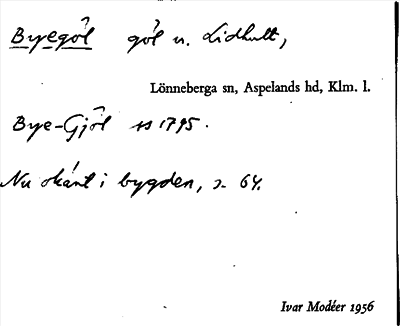 Byegöl göl n. Lidhult,
Lönneberga sn, Aspelands hd, Klm. l.
Bye-Gjöl ss 1795.
Nu okänt i bygden, s. 64.
Ivar Modéer 1956